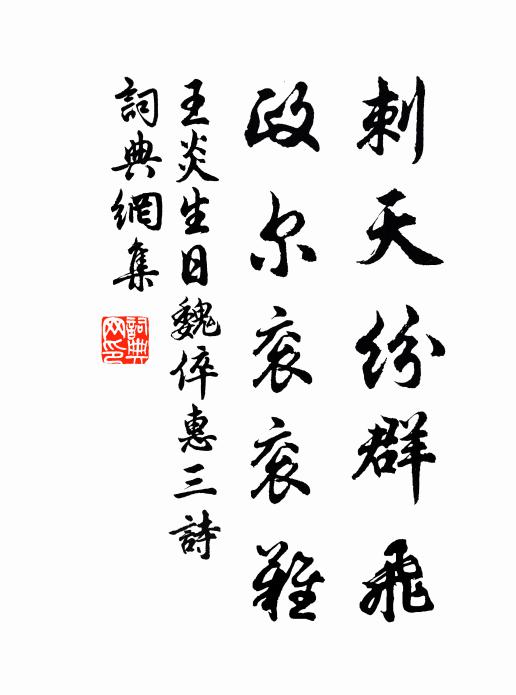 刺天纷群飛
政尔衮衮難
王炎生日魏倅惠三詩
詞典網集
詞典網印